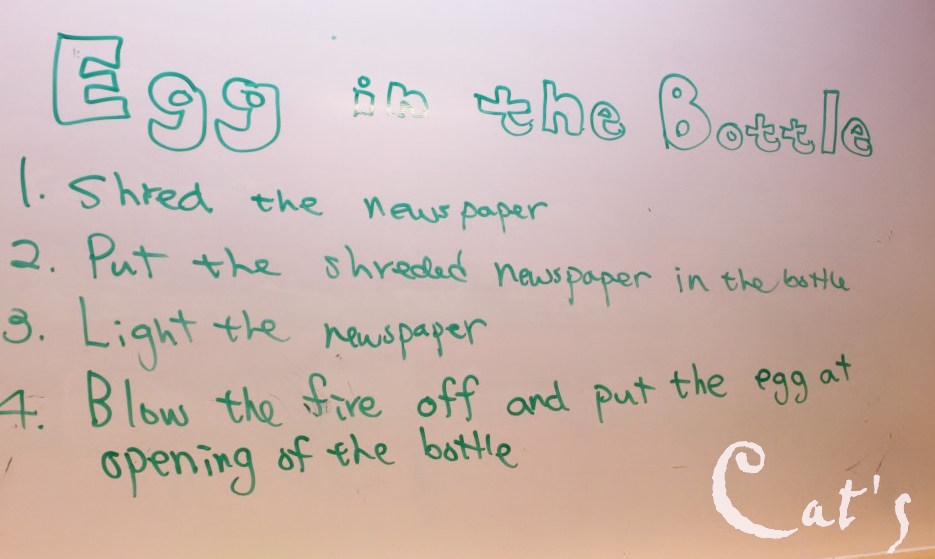 Egg in the Bottle
1. Shred the newspaper
2. Put the shreded newspaper in the bottle
3. Light the newspaper
4. Blow the fire off and put the egg at
opening of the bottle
Cat's